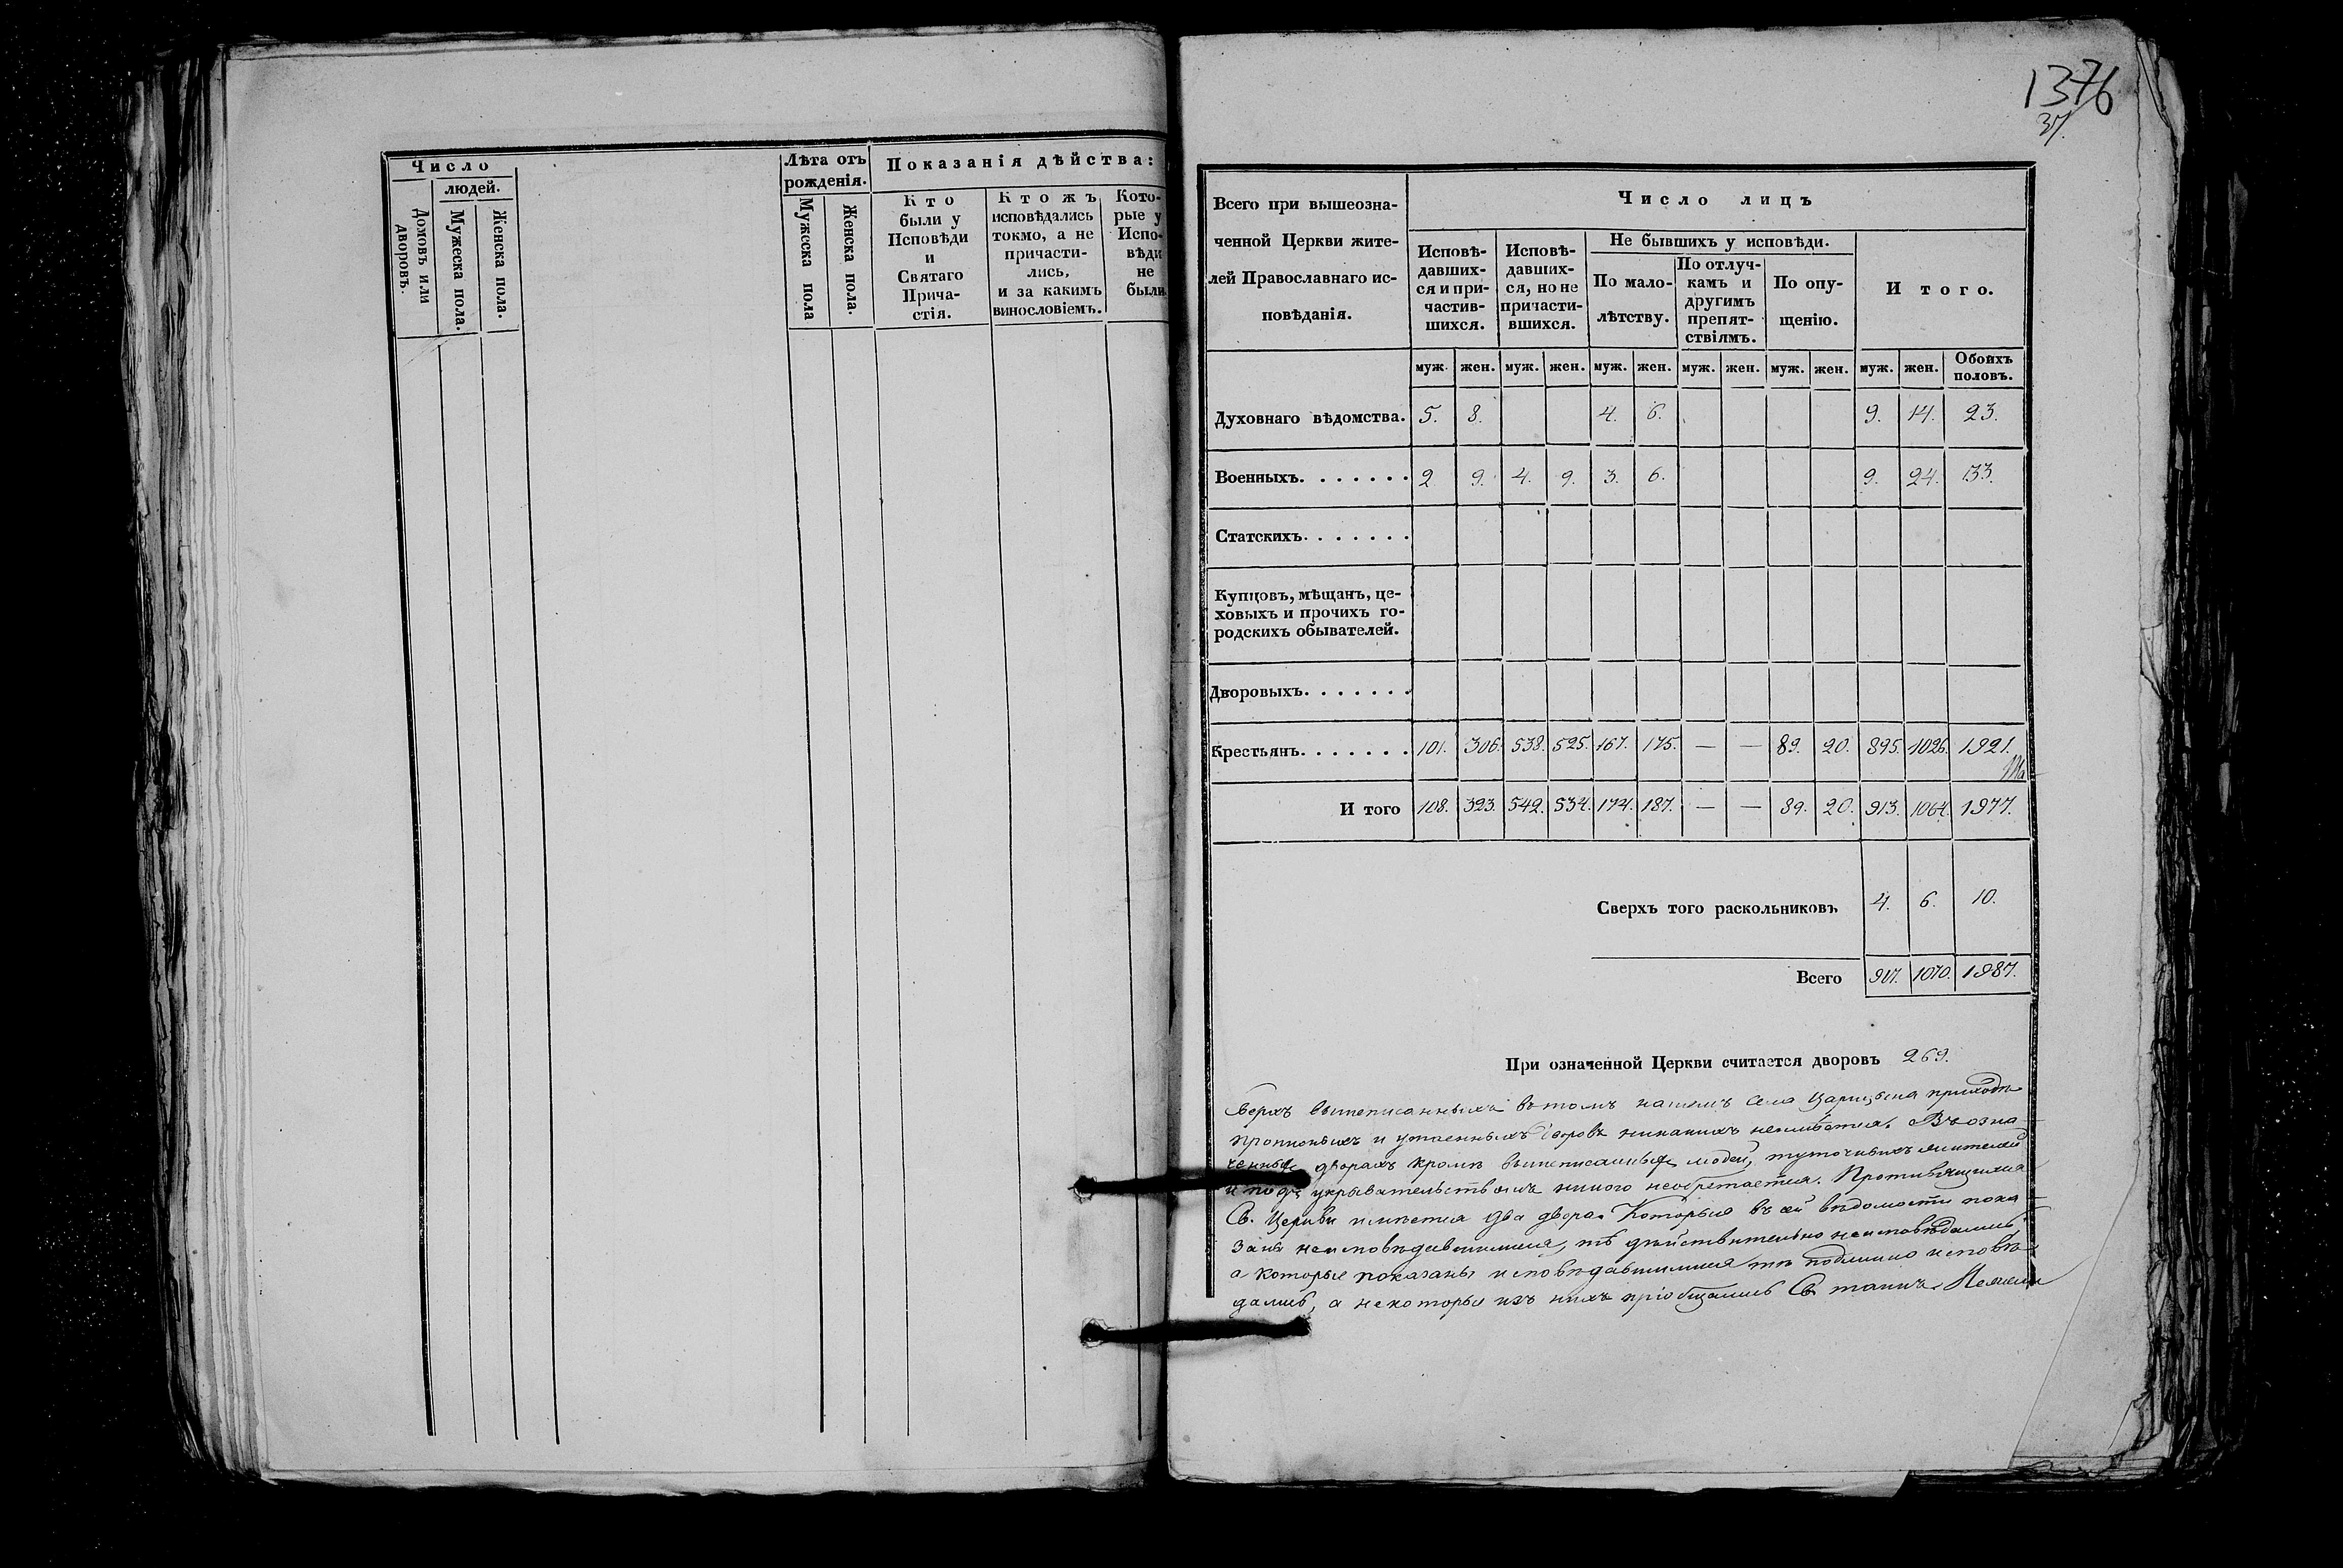 Число
людей.
Домовъ или дворовъ.
Мужеска пола.
Женска пола.
Лѣта отъ рожденія.
Мужеска пола
Женска пола.
Показанія дѣйства:
Кто
были у
Исповѣди
и
Святаго
Прича-
стія.
Ктожъ
исповѣдались
токмо, а не
причасти-
лись,
и за какимъ
винословіемъ.
Кото-
рые у
Испо-
вѣди
не
были
1376
37.
Всего при вышеозна-
ченной Церкви жите-
лей Православнаго ис-
повѣданія.
Число лицъ
Исповѣ-
давших-
ся и при-
частив-
шихся.
Исповѣ-
давших-
ся, но не
причасти-
вшихся.
Не бывшихъ у исповѣди.
По мало-
лѣтству.
По отлуч-
камъ и
другимъ
препят-
ствіямъ.
По опу-
щенію.
Итого.
муж. жен. муж. жен. муж. жен. муж. жен. муж. жен. муж. жен. Обоихъ половъ.
Духовнаго вѣдомства. 5. 8. 4. 6. 9. 14. 23.
Военныхъ. . . . . . . 2 9. 4. 9. 3. 6. 9. 24. 33.
Статскихъ. . . . . . .
Купцовъ, мѣщанъ, це-
ховыхъ и прочихъ го-
родскихъ обывателей.
Дворовыхъ. . . . . . .
Крестьянъ. . . . . . . 101. 306. 538. 525. 167. 175. — — 89. 20. 895. 1026. 1921.
И того 108. 323. 542. 534. 174. 187. — — 89. 20. 913. 1064. 1977.
Сверхъ того раскольниковъ 4. 6. 10.
Всего 917. 1070. 1987.
При означенной Церкви считается дворовъ 269.
Сверхъ вышеписанныхъ въ томъ нашемъ села Царицына приходѣ
и утаенныхъ дворовъ никакихъ неимѣется. Въ озна
ченныхъ дворахъ кромѣ вышеписанныхъ людей, жителей
и подъ укрывательствомъ никого необретается. Противящихся
Св. Церкви имѣется два двора. Которыя въ сей вѣдомости пока
заны неисповѣдавшимися, тѣ дѣйствительно неисповѣдались
а которые показаны исповѣдавшимися тѣ подлинно исповѣ
дались, а некоторые изъ нихъ пріобщались Св. таинъ.